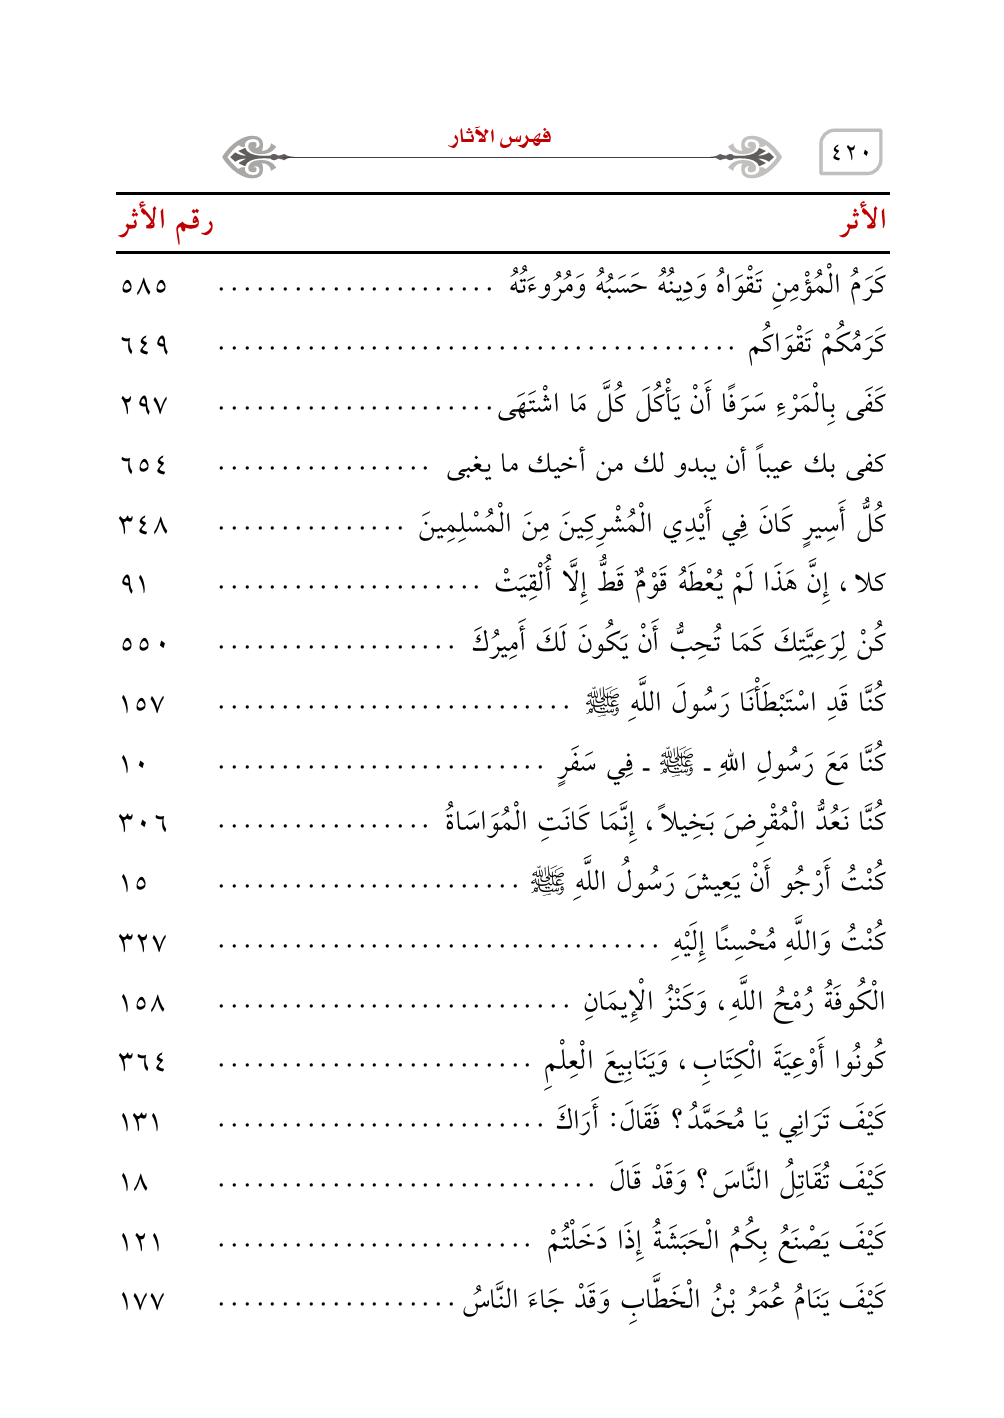 ٤٢٠
فهرس الآثار
الأثر رقم الأثر
كَرَمُ الْمُؤْمِنِ تَقْوَاهُ وَدِينُهُ حَسَبُهُ وَمُرُوءَتُهُ ...................... ٥٨٥
كَرَمُكُمْ تَقْوَاكُم ......................................... ٦٤٩
كَفَى بِالْمَرْءِ سَرَفًا أَنْ يَأْكُلَ كُلَّ مَا اشْتَهَى ...................... ٢٩٧
كفى بك عيباً أن يبدو لك من أخيك ما يغبى ................. ٦٥٤
كُلُّ أَسِيرٍ كَانَ فِي أَيْدِي الْمُشْرِكِينَ مِنَ الْمُسْلِمِينَ ............... ٣٤٨
كلا، إِنَّ هَذَا لَمْ يُعْطَهُ قَوْمٌ قَطُّ إِلَّا أُلْقِيَتْ ..................... ٩١
كُنْ لِرَعِيَّتِكَ كَمَا تُحِبُّ أَنْ يَكُونَ لَكَ أَمِيرُكَ ................... ٥٥٠
كُنَّا قَدِ اسْتَبْطَأْنَا رَسُولَ اللَّهِ ﷺ ............................ ١٥٧
كُنَّا مَعَ رَسُولِ اللهِ ـ ﷺ ـ فِي سَفَرٍ .......................... ١٠
كُنَّا نَعُدُّ الْمُقْرِضَ بَخِيلاً، إِنَّمَا كَانَتِ الْمُوَاسَاةُ ................. ٣٠٦
كُنْتُ أَرْجُو أَنْ يَعِيشَ رَسُولُ اللَّهِ ﷺ ........................ ١٥
كُنْتُ وَاللَّهِ مُحْسِنًا إِلَيْهِ ................................... ٣٢٧
الْكُوفَةُ رُمْحُ اللَّهِ، وَكَنْزُ الْإِيمَانِ ............................ ١٥٨
كُونُوا أَوْعِيَةَ الْكِتَابِ، وَيَنَابِيعَ الْعِلْمِ ......................... ٣٦٤
كَيْفَ تَرَانِي يَا مُحَمَّدُ؟ فَقَالَ: أَرَاكَ .......................... ١٣١
كَيْفَ تُقَاتِلُ النَّاسَ؟ وَقَدْ قَالَ .............................. ١٨
كَيْفَ يَصْنَعُ بِكُمُ الْحَبَشَةُ إِذَا دَخَلْتُمْ ......................... ١٢١
كَيْفَ يَنَامُ عُمَرُ بْنُ الْخَطَّابِ وَقَدْ جَاءَ النَّاسُ ................... ١٧٧